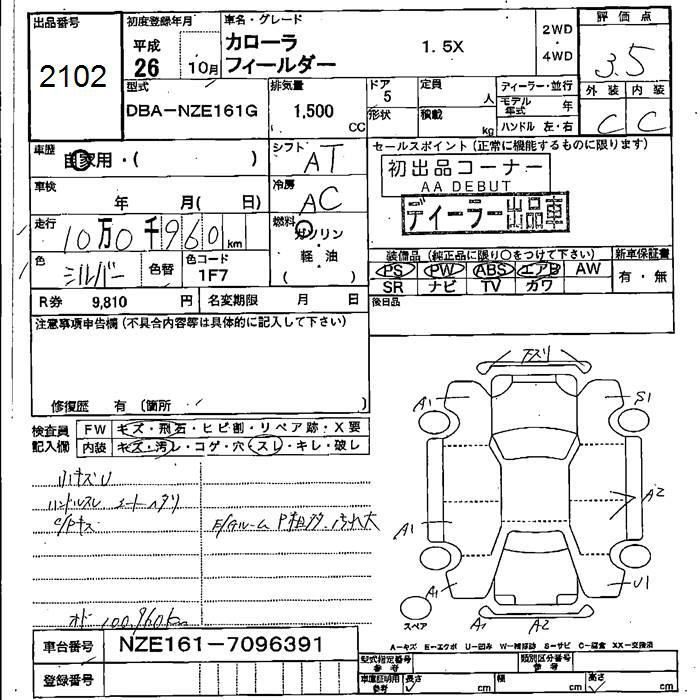 出品番号
2102
初度登録年月
平成
26 10月
車名・グレード
カローラ
フィールダー
1.5X
2WD
・
4WD
評価点
3.5
型式
DBA-NZE161G
排気量
1,500
CC
ドア
5
形状
定員
人
積載
kg
ディーラー・並行
モデル年式 年
ハンドル 左・右
外装 内装
C C
車歴
自家用・( )
シフト
AT
セールスポイント(正常に機能するものに限ります)
初出品コーナー
AA DEBUT
ディーラー出品車
車検
年 月( 日)
冷房
AC
走行
10万0千960km
燃料
ガソリン
・
軽・油
( )
色
シルバー
色替
色コード
1F7
装備品(純正品に限り○をつけて下さい)
PS PW ABS エアB AW
SR ナビ TV カワ
新車保証書
有・無
R券 9,810 円
名変期限 月 日
後日品
注意事項申告欄(不具合内容等は具体的に記入して下さい)
修復歴 有 〔箇所 〕
検査員
記入欄
FW キズ・飛石・ヒビ割・リペア跡・X要
内装 キズ・汚レ・コゲ・穴・スレ・キレ・破レ
小キズU
ハンドルスレ シートヘタリ
C/Pキズ
E/Gルーム P粗サ 汚れ大
オド 100,960km
下スリ
A1
S1
A1
A2
A1
U1
スペア
A1
A2
車台番号
NZE161-7096391
登録番号
A-キズ E-エクボ U-凹み W-補修跡 S-サビ C-腐食 XX-交換済
型式指定番号
参考
類別区分番号
参考
車庫証明用
参考
長さ cm
幅 cm
高さ cm